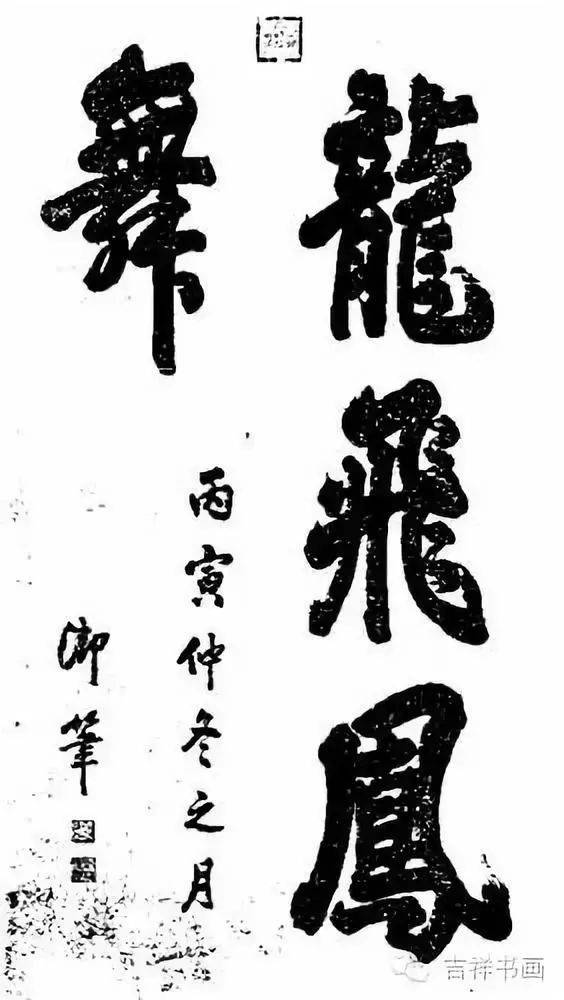 龍飛鳳
舞
丙寅仲冬之月
御筆
吉祥书画